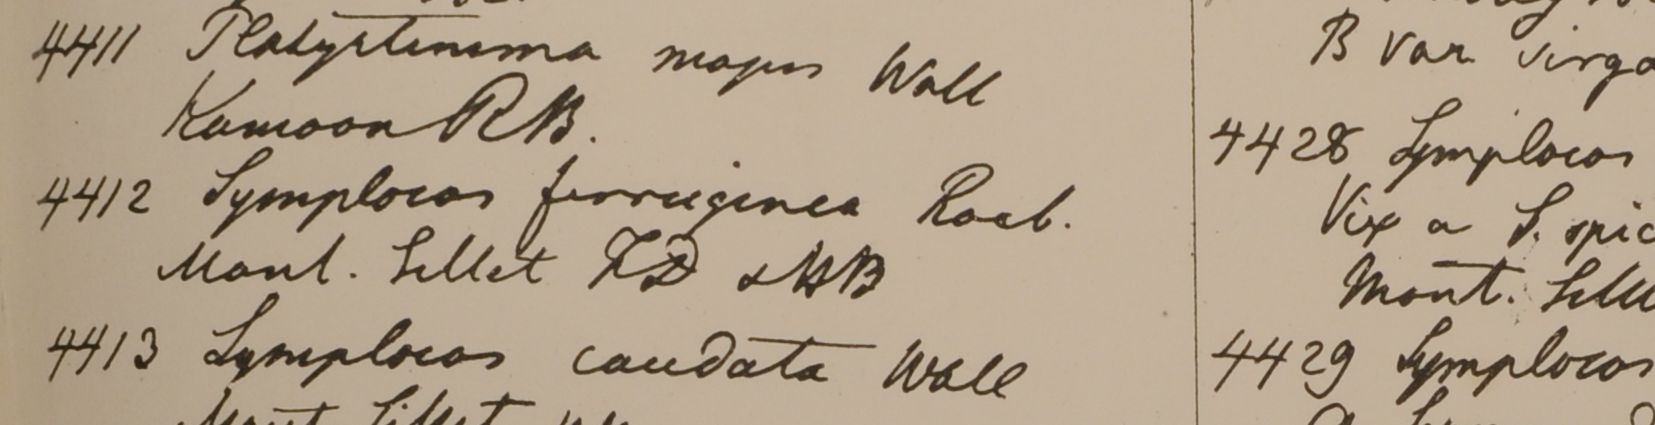 4411 Platystemma majus Wall
Kamoon RB.
4412 Symplocos ferruginea Roxb.
Mont. Sillet FD & HB
4413 Symplocos caudata Wall
Mont Sillet
B var virga
4428 Symplocos
Vix a S. spic
Mont. Sille
4429 Symplocos